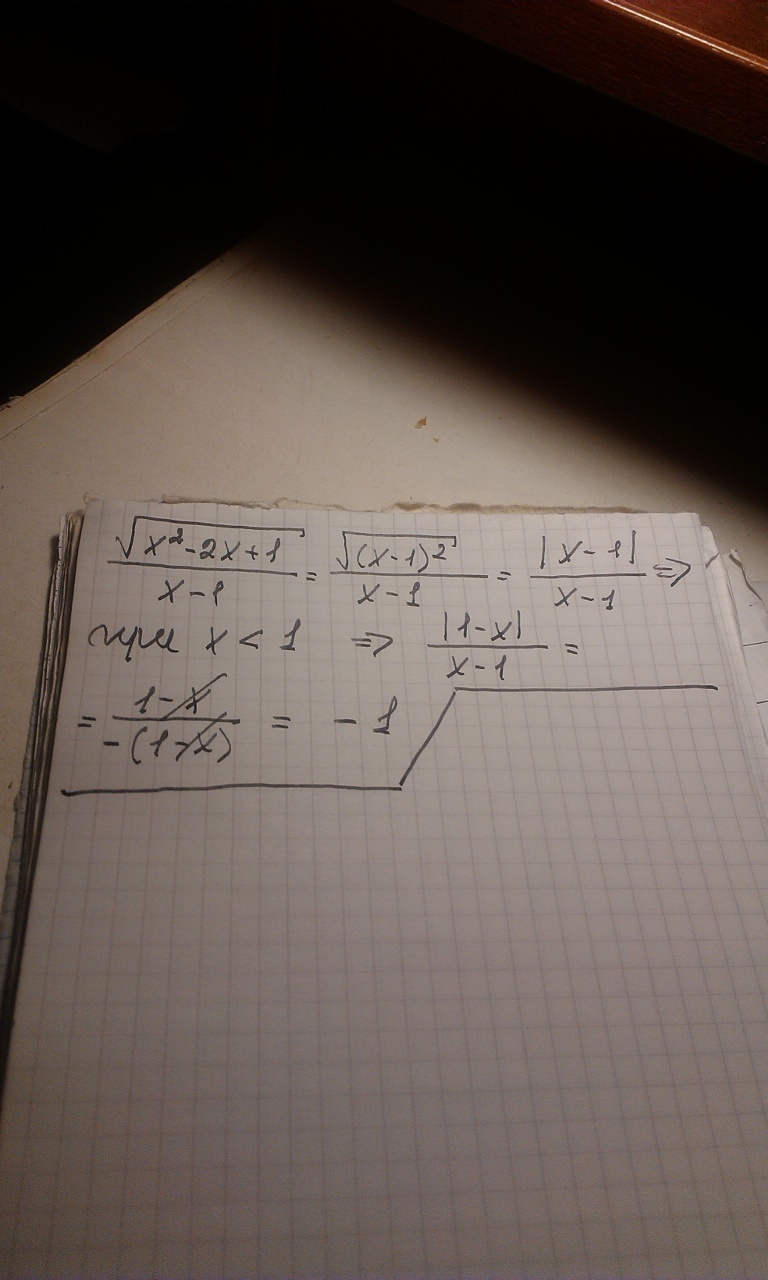 √(x²-2x+1)/(x-1) = √((x-1)²)/(x-1) = |x-1|/(x-1) =>
при x < 1 => |1-x|/(x-1) =
= (1-x)/(-(1-x)) = -1